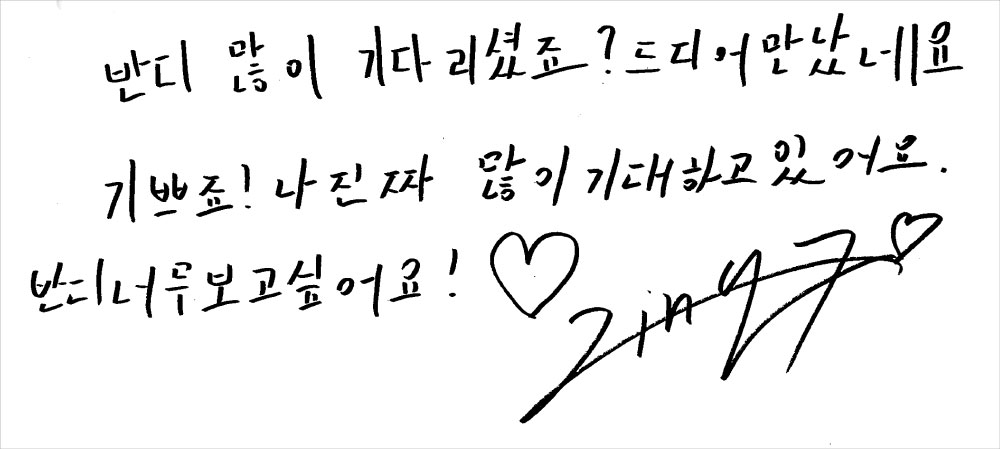 반디 많이 기다리셨죠? 드디어 만났네요
기쁘죠! 나 진짜 많이 기대하고 있어요.
반디 너무 보고싶어요! ♡